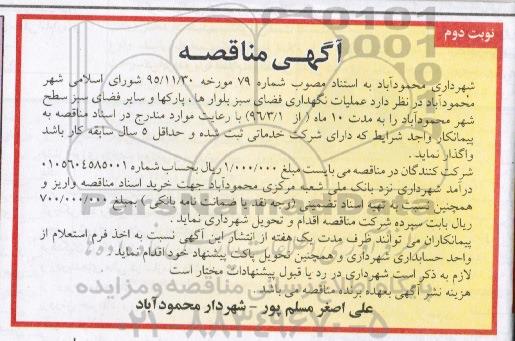 نوبت دوم
آگهـی مناقصـه
شهرداری محمودآباد به استناد مصوب شماره ۷۹ مورخه ۹۵/۱۱/۳۰ شورای اسلامی شهر
محمودآباد در نظر دارد عملیات نگهداری فضای سبز بلوار ها ، پارکها و سایر فضای سبز سطح
شهر محمودآباد را به مدت ۱۰ ماه ( از ۹۶/۳/۱) با رعایت موارد مندرج در اسناد مناقصه به
پیمانکار واجد شرایط که دارای شرکت خدماتی ثبت شده و حداقل ۵ سال سابقه کار باشد
واگذار نماید .
شرکت کنندگان در مناقصه می بایست مبلغ ۱/۰۰۰/۰۰۰ ریال بحساب شماره ۰۱۰۵۶۰۴۵۸۵۰۰۱
درآمد شهرداری نزد بانک ملی شعبه مرکزی محمودآباد جهت خرید اسناد مناقصه واریز و
همچنین نسبت به تهیه اسناد تضمینی (وجه نقد یا ضمانت نامه بانکی ) بمبلغ ۷۰۰/۰۰۰/۰۰۰
ریال بابت سپرده شرکت مناقصه اقدام و تحویل شهرداری نماید .
پیمانکاران می توانند ظرف مدت یک هفته از انتشار این آگهی نسبت به اخذ فرم استعلام از
واحد حسابداری شهرداری و همچنین تحویل پاکت پیشنهاد خود اقدام نماید
لازم به ذکر است شهرداری در رد یا قبول پیشنهادات مختار است
هزینه نشر آگهی بعهده برنده مناقصه می باشد
علی اصغر مسلم پور - شهردار محمودآباد